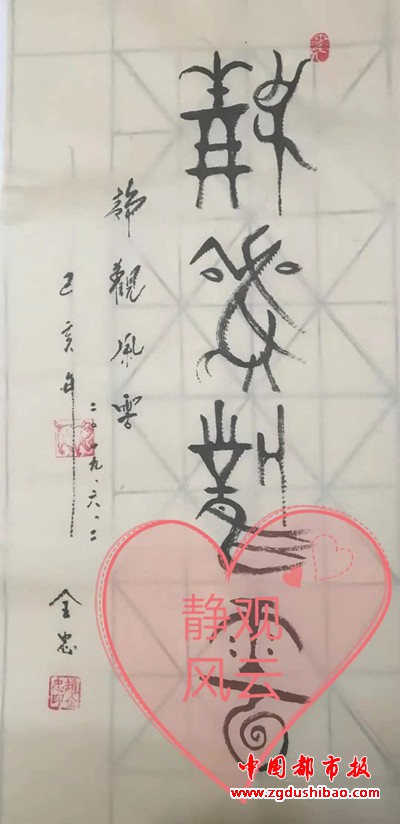 靜觀風雲
靜觀風雲
己亥年
二〇一九.六.二
全忠
静观
风云
中国都市报
www.zgdushibao.com